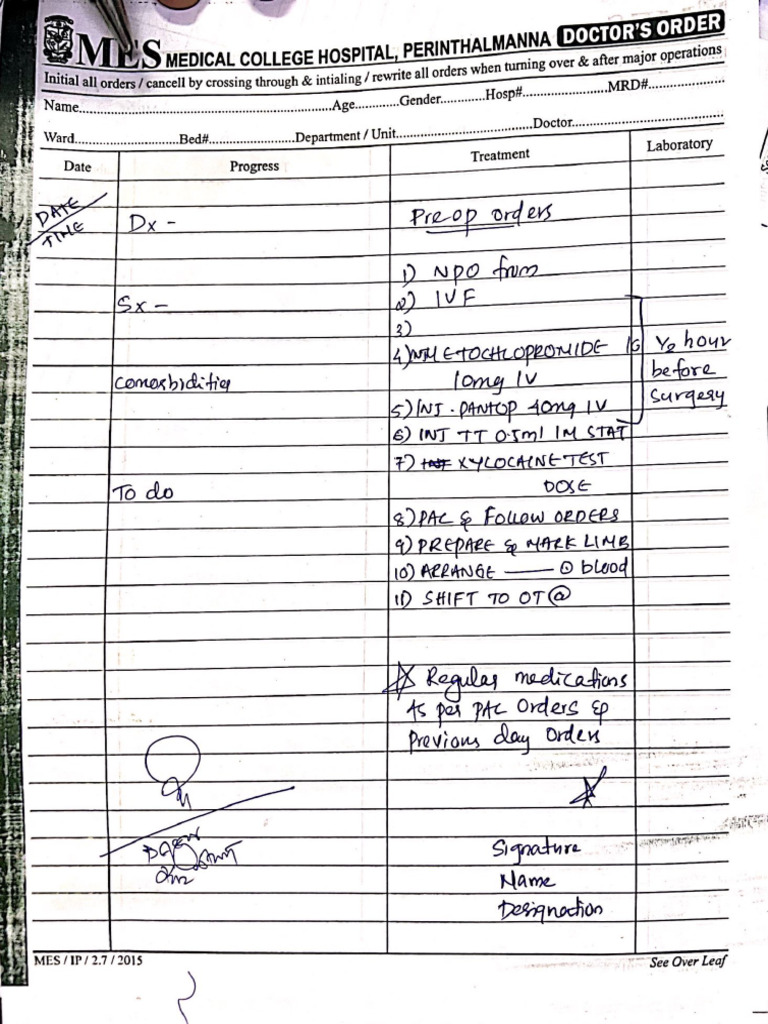 MES MEDICAL COLLEGE HOSPITAL, PERINTHALMANNA DOCTOR'S ORDER
Initial all orders / cancell by crossing through & intialing / rewrite all orders when turning over & after major operations
Name.......... Age.......... Gender.......... Hosp#.......... MRD#..........
Ward.......... Bed#.......... Department / Unit.......... Doctor..........
Date Progress Treatment Laboratory
DATE
TIME
Dx -
Preop orders
1) NPO from
Sx -
2) IVF
3)
4) METOCHLOPROMIDE
½ hour
before
surgery
comorbidities
10mg IV
5) INJ. PANTOP 40mg IV
6) INJ TT 0.5ml IM STAT
7) XYLOCAINE TEST
DOSE
To do
8) PAC & FOLLOW ORDERS
9) PREPARE & MARK LIMB
10) ARRANGE —— blood
11) SHIFT TO OT @
Regular medications
As per PAC Orders &
Previous day Orders
Signature
Name
Designation
MES / IP / 2.7 / 2015
See Over Leaf